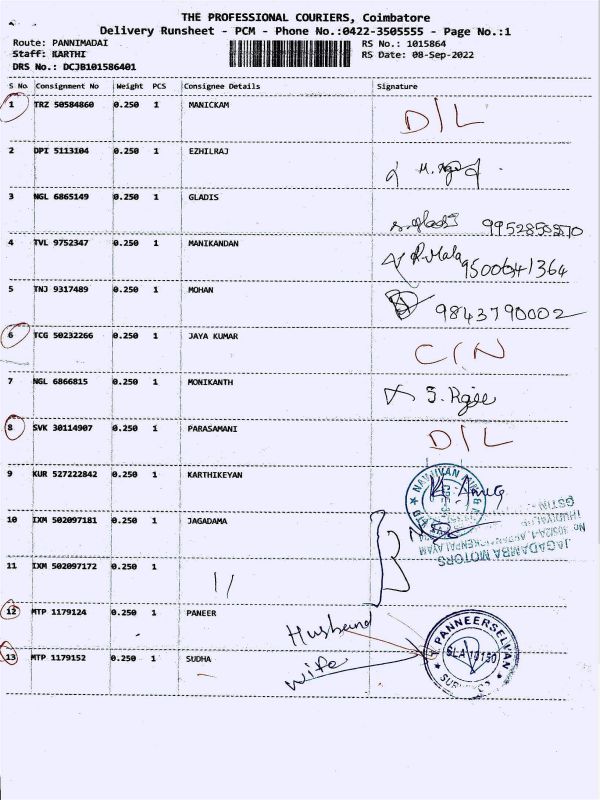 THE PROFESSIONAL COURIERS, Coimbatore
Delivery Runsheet - PCM - Phone No.:0422-3505555 - Page No.:1
Route: PANNIMADAI
RS No.: 1015864
Staff: KARTHI
RS Date: 08-Sep-2022
DRS No.: DCJB101586401
S No Consignment No Weight PCS Consignee Details Signature
1 TRZ 50584860 0.250 1 MANICKAM D/L
2 DPI 5113104 0.250 1 EZHILRAJ
3 NGL 6865149 0.250 1 GLADIS
s.gladis 9952850270
4 TVL 9752347 0.250 1 MANIKANDAN R.Mala
9500641364
5 TNJ 9317489 0.250 1 MOHAN
9843790002
6 TCG 50232266 0.250 1 JAYA KUMAR C/N
7 NGL 6866815 0.250 1 MONIKANTH
8 SVK 30114907 0.250 1 PARASAMANI D/L
9 KUR 527222842 0.250 1 KARTHIKEYAN
10 IXM 502097181 0.250 1 JAGADAMA
JAGADAMBA MOTORS
GSTIN
11 IXM 502097172 0.250 1
12 MTP 1179124 0.250 1 PANEER Husband
13 MTP 1179152 0.250 1 SUDHA wife
PANNEERSELVAN
SLA 10150